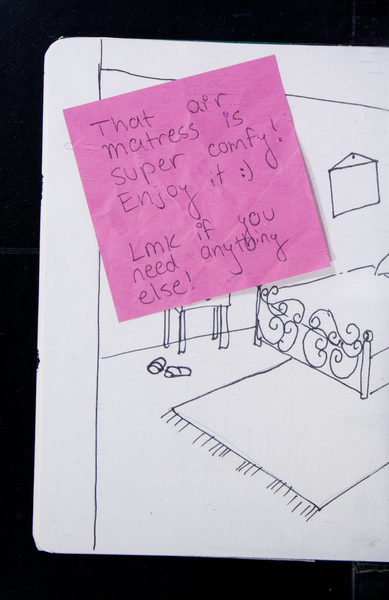 That air
matress is
super comfy!
Enjoy it :)
Lmk if you
need anything
else!